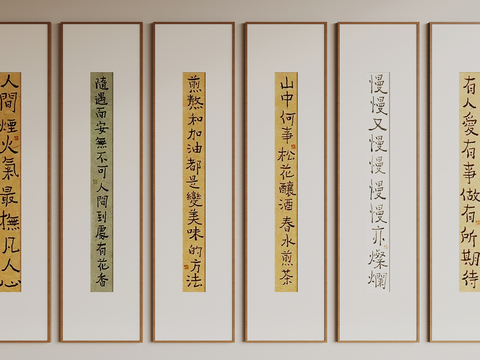 人間煙火氣最撫凡人心
隨遇而安無不可人間到處有花香
煎熬和加油都是變美味的方法
山中何事松花釀酒春水煎茶
慢慢又慢慢慢慢亦燦爛
有人愛有事做有所期待